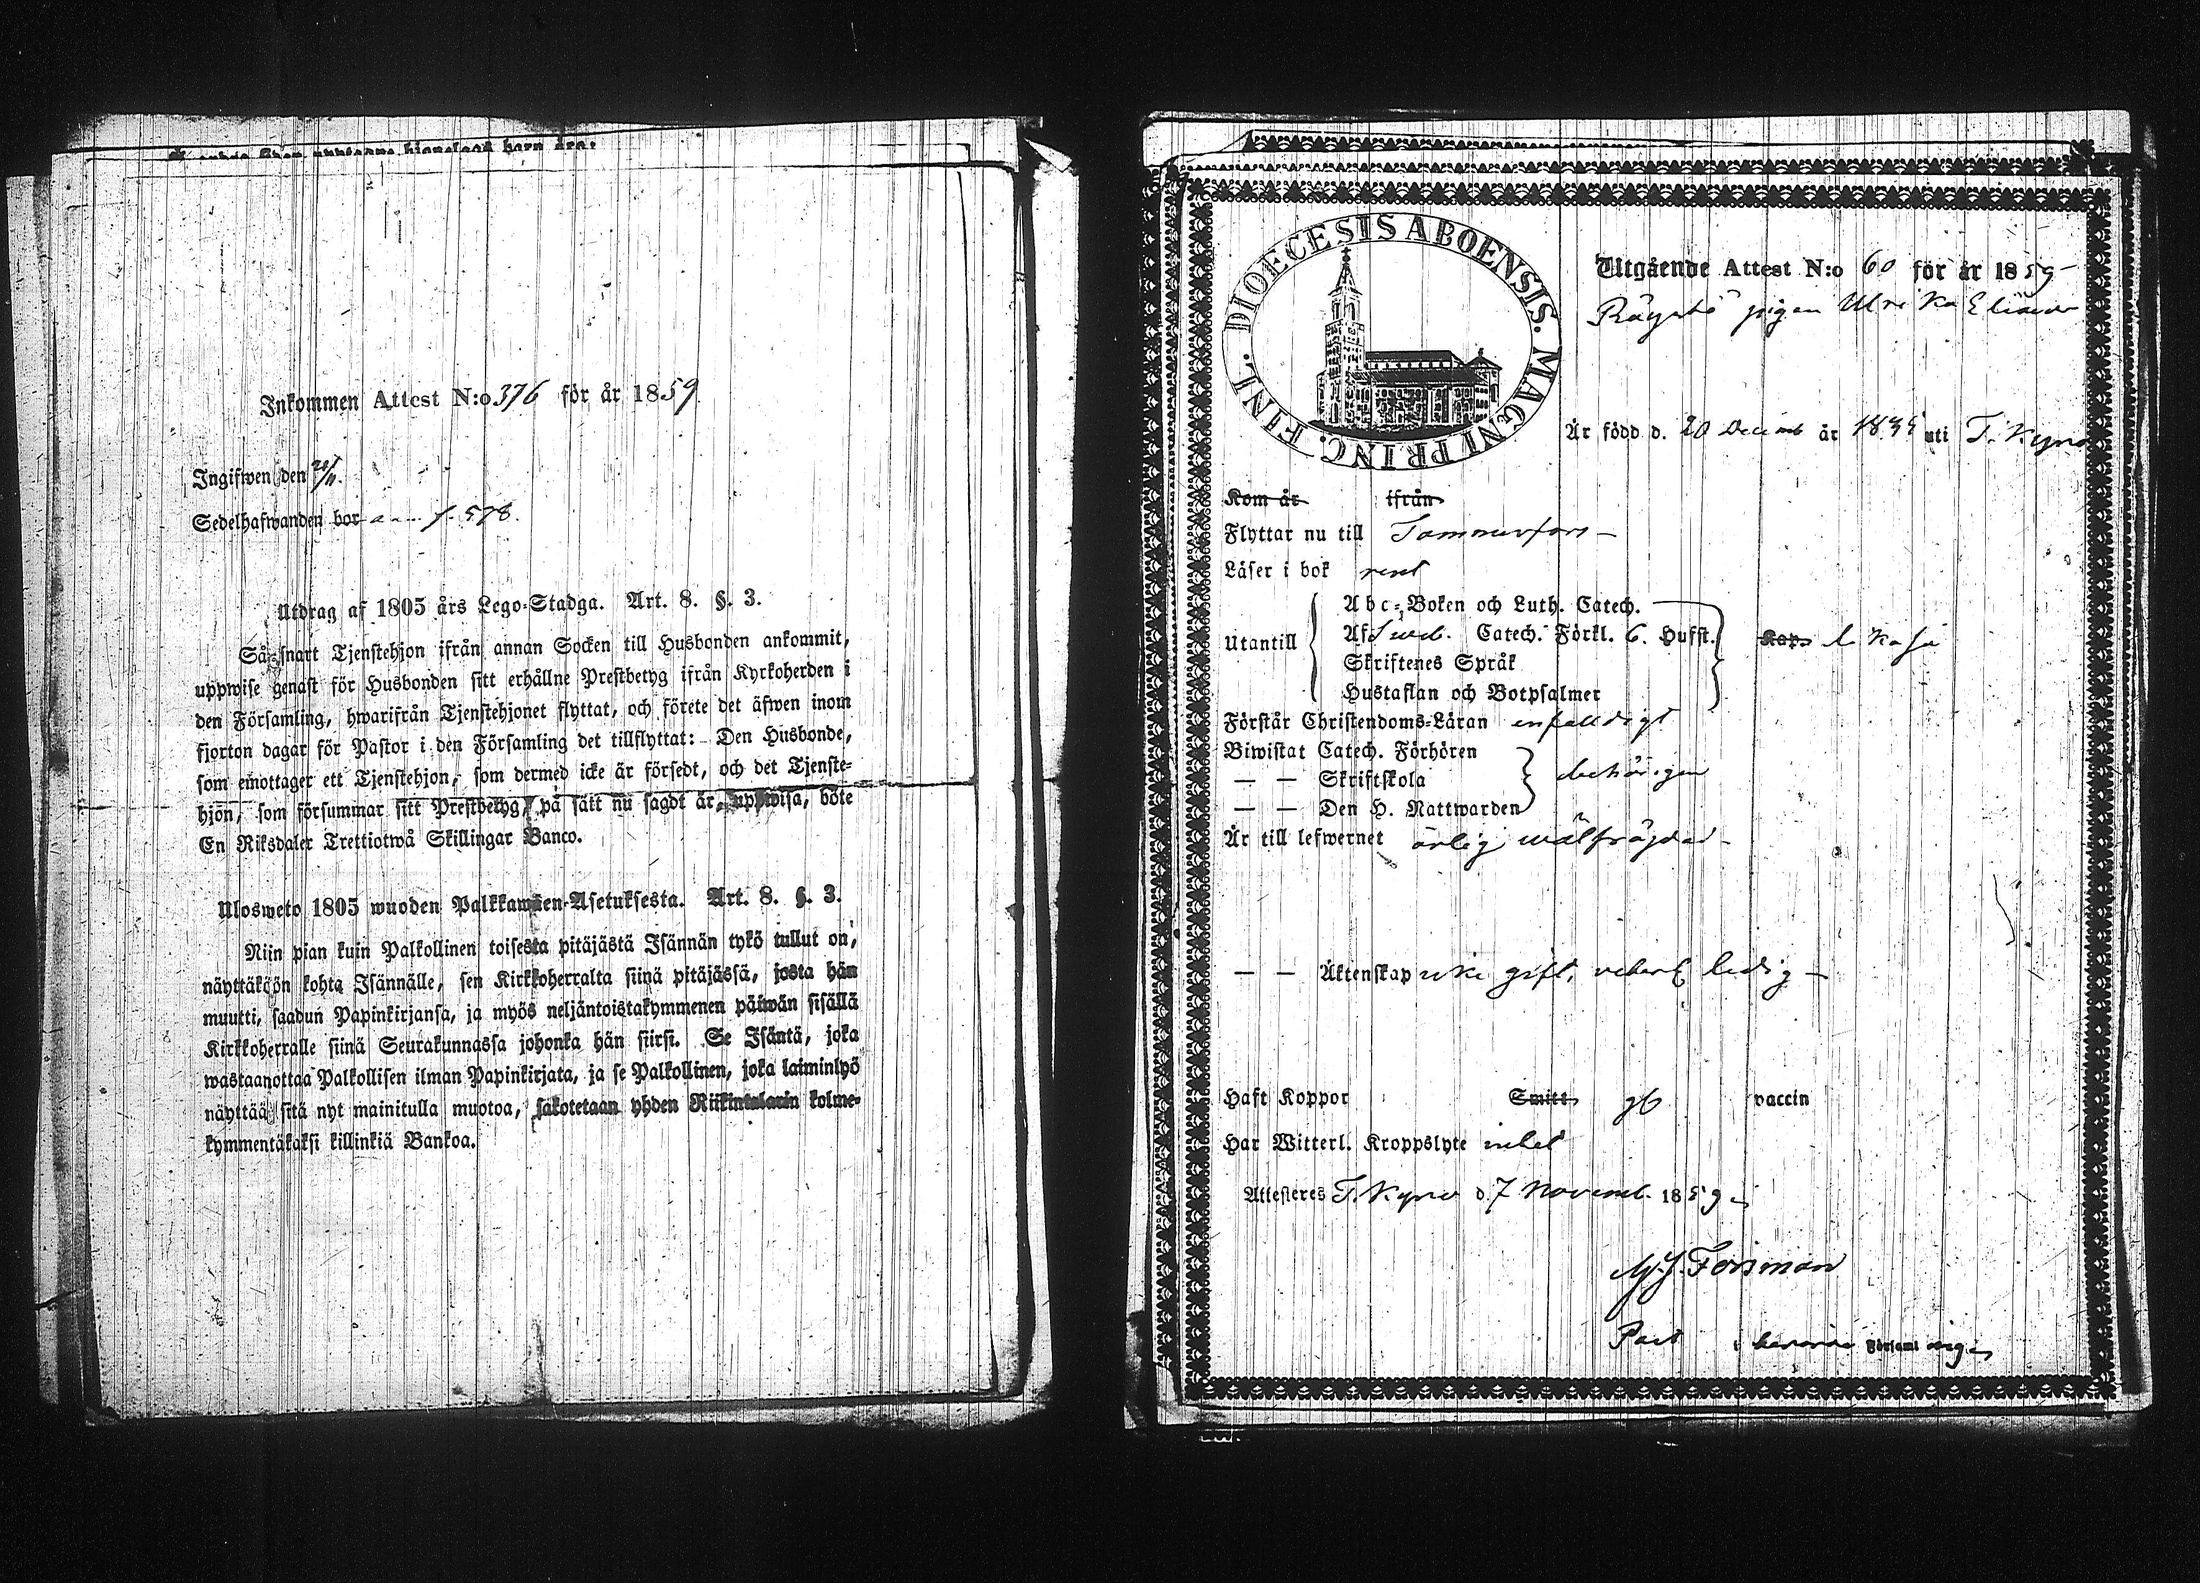 Inkommen Attest N:o 376 för år 1859
Ingifwen den 20/11.
Sedelhafwanden bor f. 578.
Utdrag af 1805 års Lego-Stadga. Art. 8. §. 3.
Så snart Tjenstehjon ifrån annan Socken till Husbonden ankommit,
uppwise genast för Husbonden sitt erhållne Prestbetyg ifrån Kyrkoherden i
den Församling, hwarifrån Tjenstehjonet flyttat, och förete det äfwen inom
fjorton dagar för Pastor i den Församling det tillflyttat: Den Husbonde,
som emottager ett Tjenstehjon, som dermed icke är försedt, och det Tjenste-
hjon, som försummar sitt Prestbetyg, på sätt nu sagdt är, uppwisa, böte
En Riksdaler Trettiotwå Skillingar Banco.
Ulosweto 1805 wuoden Palkkawäen-Asetuksesta. Art. 8. §. 3.
Niin pian kuin Palkollinen toisesta pitäjästä Isännän tykö tullut on,
näyttäköön kohta Isännälle, sen Kirkkoherralta siinä pitäjässä, josta hän
muutti, saadun Papinkirjansa, ja myös neljäntoistakymmenen päiwän sisällä
Kirkkoherralle siinä Seurakunnassa johonka hän siirsi. Se Isäntä, joka
wastaanottaa Palkollisen ilman Papinkirjata, ja se Palkollinen, joka laiminlyö
näyttää sitä nyt mainitulla muotoa, sakotetaan yhden Riikintalarin kolme-
kymmentäkaksi killinkiä Bankoa.
DIOECESIS ABOENSIS. MAGNI PRINC. FINL.
Utgående Attest N:o 60 för år 1859
pigan Ulrika
Är född d. 20 Decemb år 1835 uti T. Kyro
Kom år ifrån
Flyttar nu till Tammerfors
Läser i bok rent
Utantill
Abc-Boken och Luth. Catech.
Af Sweb. Catech. Förkl. 6. Hufst.
Skriftenes Språk
Hustaflan och Botpsalmer
Kap.
Förstår Christendoms-Läran enfaldigt
Biwistat Catech. Förhören
— — Skriftskola
— — Den H. Nattwarden
behörigen
Är till lefwernet ärlig wälfräjdad
— — Äktenskap icke gift, ledig
Haft Koppor Smitt gb vaccin
Har Witterl. Kroppslyte intet
Attesteres T. Kyro d. 7 Novemb. 1859
M. J. Forsman
Past i Församl